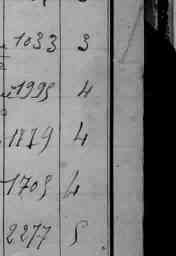 1033 3
1995 4
1779 4
1705 4
2277 5